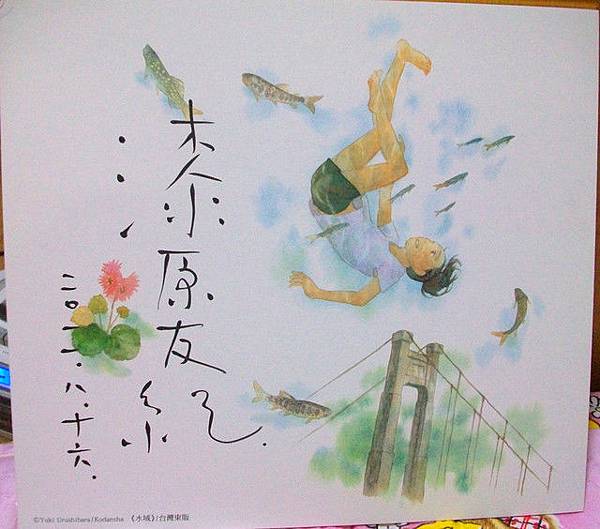 漆原友紀.
二〇一一.八.十六.
©Yuki Urushibara/Kodansha 《水域》/台灣東販